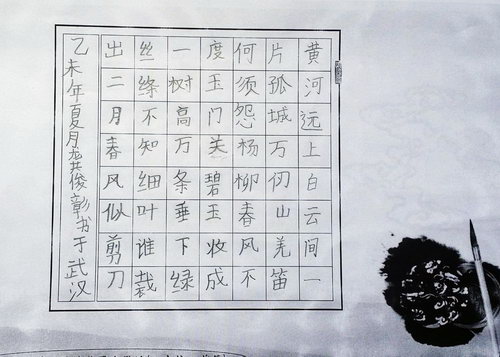 黄河远上白云间一
片孤城万仞山羌笛
何须怨杨柳春风不
度玉门关碧玉妆成
一树高万条垂下绿
丝绦不知细叶谁裁
出二月春风似剪刀
乙未年夏月龚俊彰书于武汉